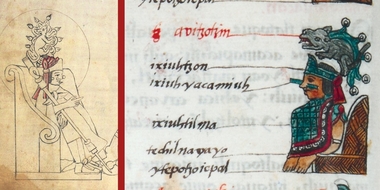 ytepotzoicpal
avitzotzin
ixiuhtzon
ixiuhyacamiuh
ixiuhtilma
techilnavayo
ytepotzoicpal